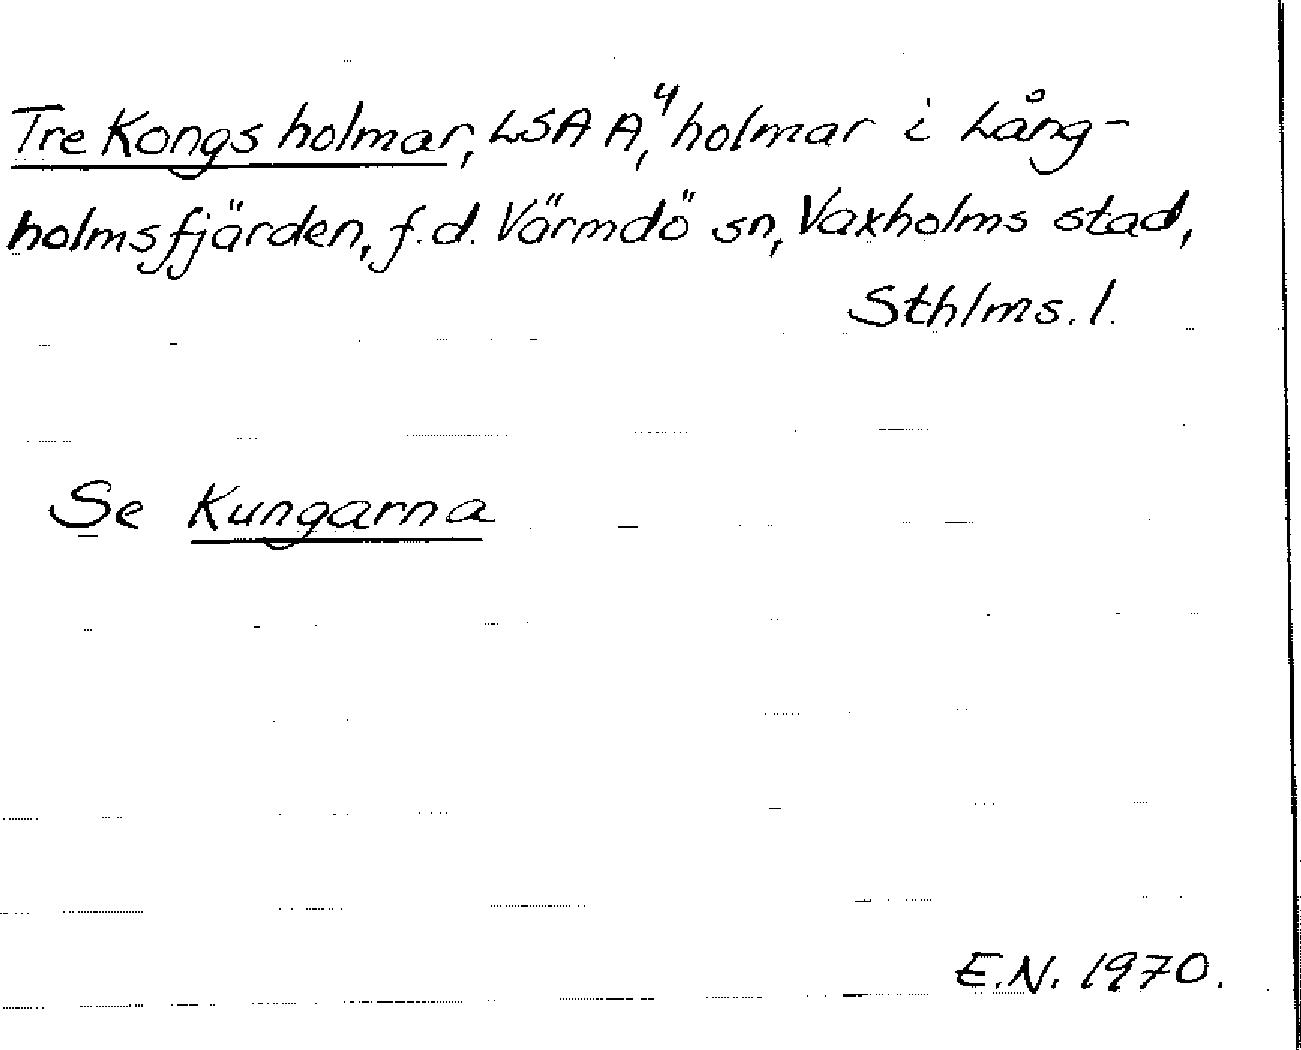 Tre Kongs holmar, LSA A⁴, holmar i Lång-
holmsfjärden, f.d. Värmdö sn, Vaxholms stad,
Sthlms. l.
Se Kungarna
E.N. 1970.